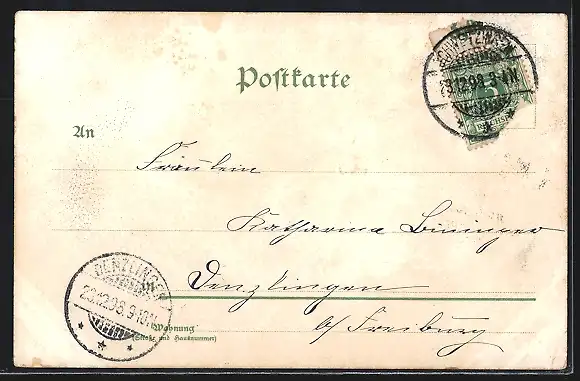 Postkarte
An
Fräulein
Katharina Bininger
Denzlingen
b/ Freiburg
Wohnung
(Straße und Hausnummer)
DENZLINGEN
23.12.98. 9-10 V.
23.12.98. 9-